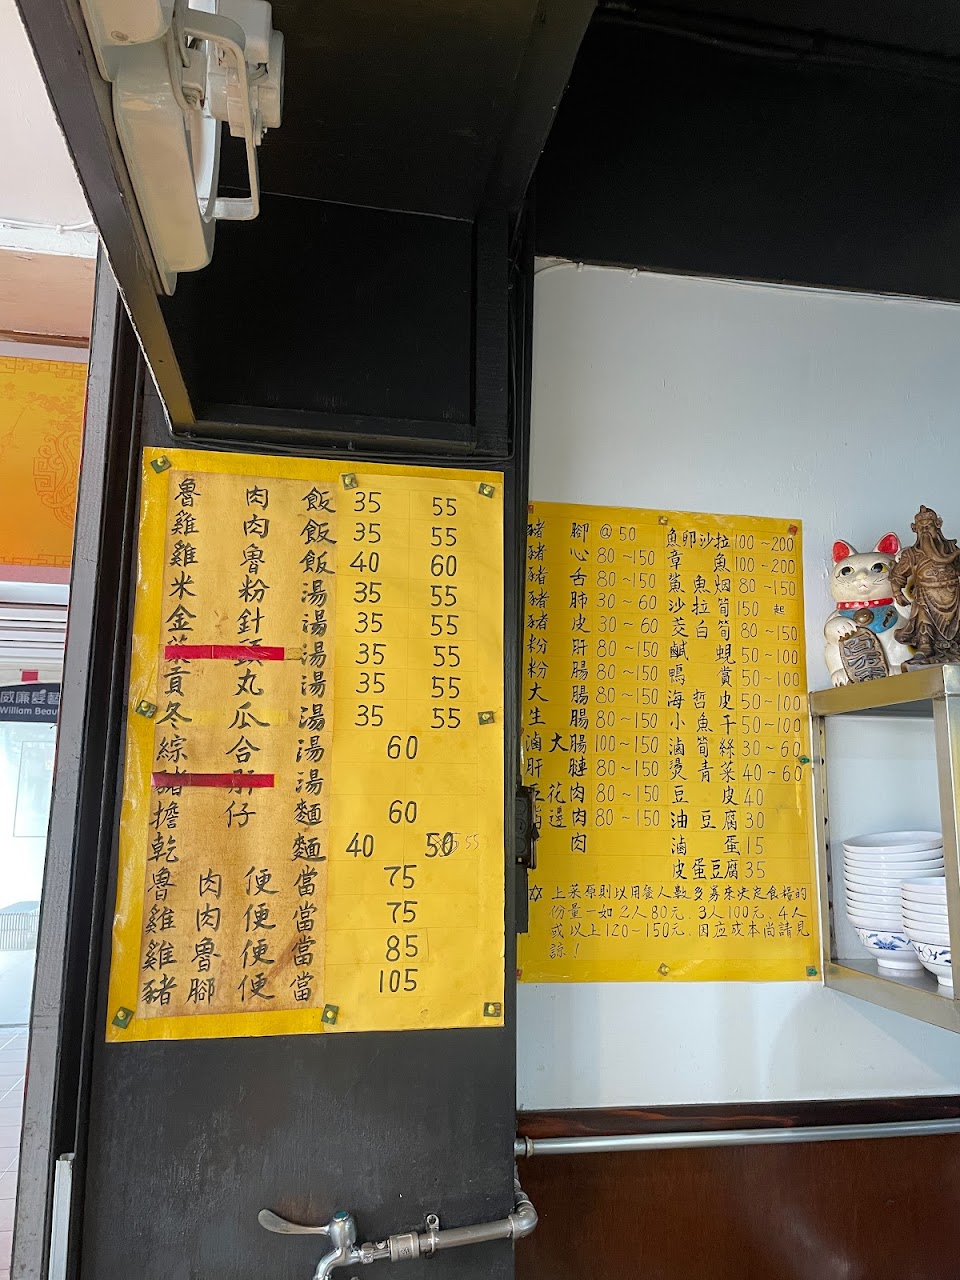 魯肉飯 35 55
雞肉飯 35 55
雞魯飯 40 60
米粉湯 35 55
金針湯 35 55
頭湯 35 55
貢丸湯 35 55
冬瓜湯 35 55
綜合湯 60
豬肝湯
擔仔麵 60
乾麵 40 50 55
魯肉便當 75
雞肉便當 75
雞魯便當 85
豬腳便當 105
豬腳 @50
豬心 80~150
豬舌 80~150
豬肺 30~60
豬皮 30~60
粉肝 80~150
粉腸 80~150
大腸 80~150
生腸 80~150
滷大腸 100~150
肝腱 80~150
花肉 80~150
邊肉 80~150
肉
魚卵沙拉 100~200
章魚 100~200
鯊魚烟 80~150
沙拉筍 150 起
茭白筍 80~150
鹹蜆 50~100
鴨賞 50~100
海哲皮 50~100
小魚干 50~100
滷筍絲 30~60
燙青菜 40~60
豆皮 40
油豆腐 30
滷蛋 15
皮蛋豆腐 35
✡ 上菜原則以用餐人數多寡來決定食糧的
份量一如2人80元、3人100元、4人
或以上120~150元、因应成本尚請見
諒！
威廉髮藝
William Beau